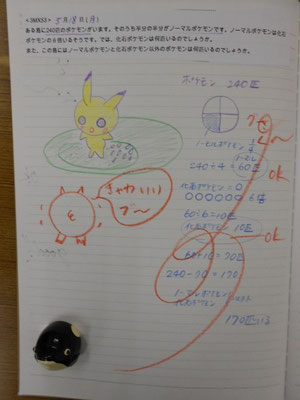 <3MXS3> 5月18日(月)
ある島に240匹のポケモンがいます。そのうち半分の半分がノーマルポケモンです。ノーマルポケモンは化石
ポケモンの6倍いるそうです。では、化石ポケモンは何匹いるのでしょうか。
また、この島にはノーマルポケモンと化石ポケモン以外のポケモンは何匹いるのでしょうか。
ポケモン 240匹
ノーマルポケモン
240÷4=60匹
OK
化石ポケモン=○
○○○○○○ 6倍
60÷6=10匹
化石ポケモン 10匹
OK
60+10=70匹
240-70=170
ノーマルポケモンと
170匹いる
きゃわいい
ブ〜